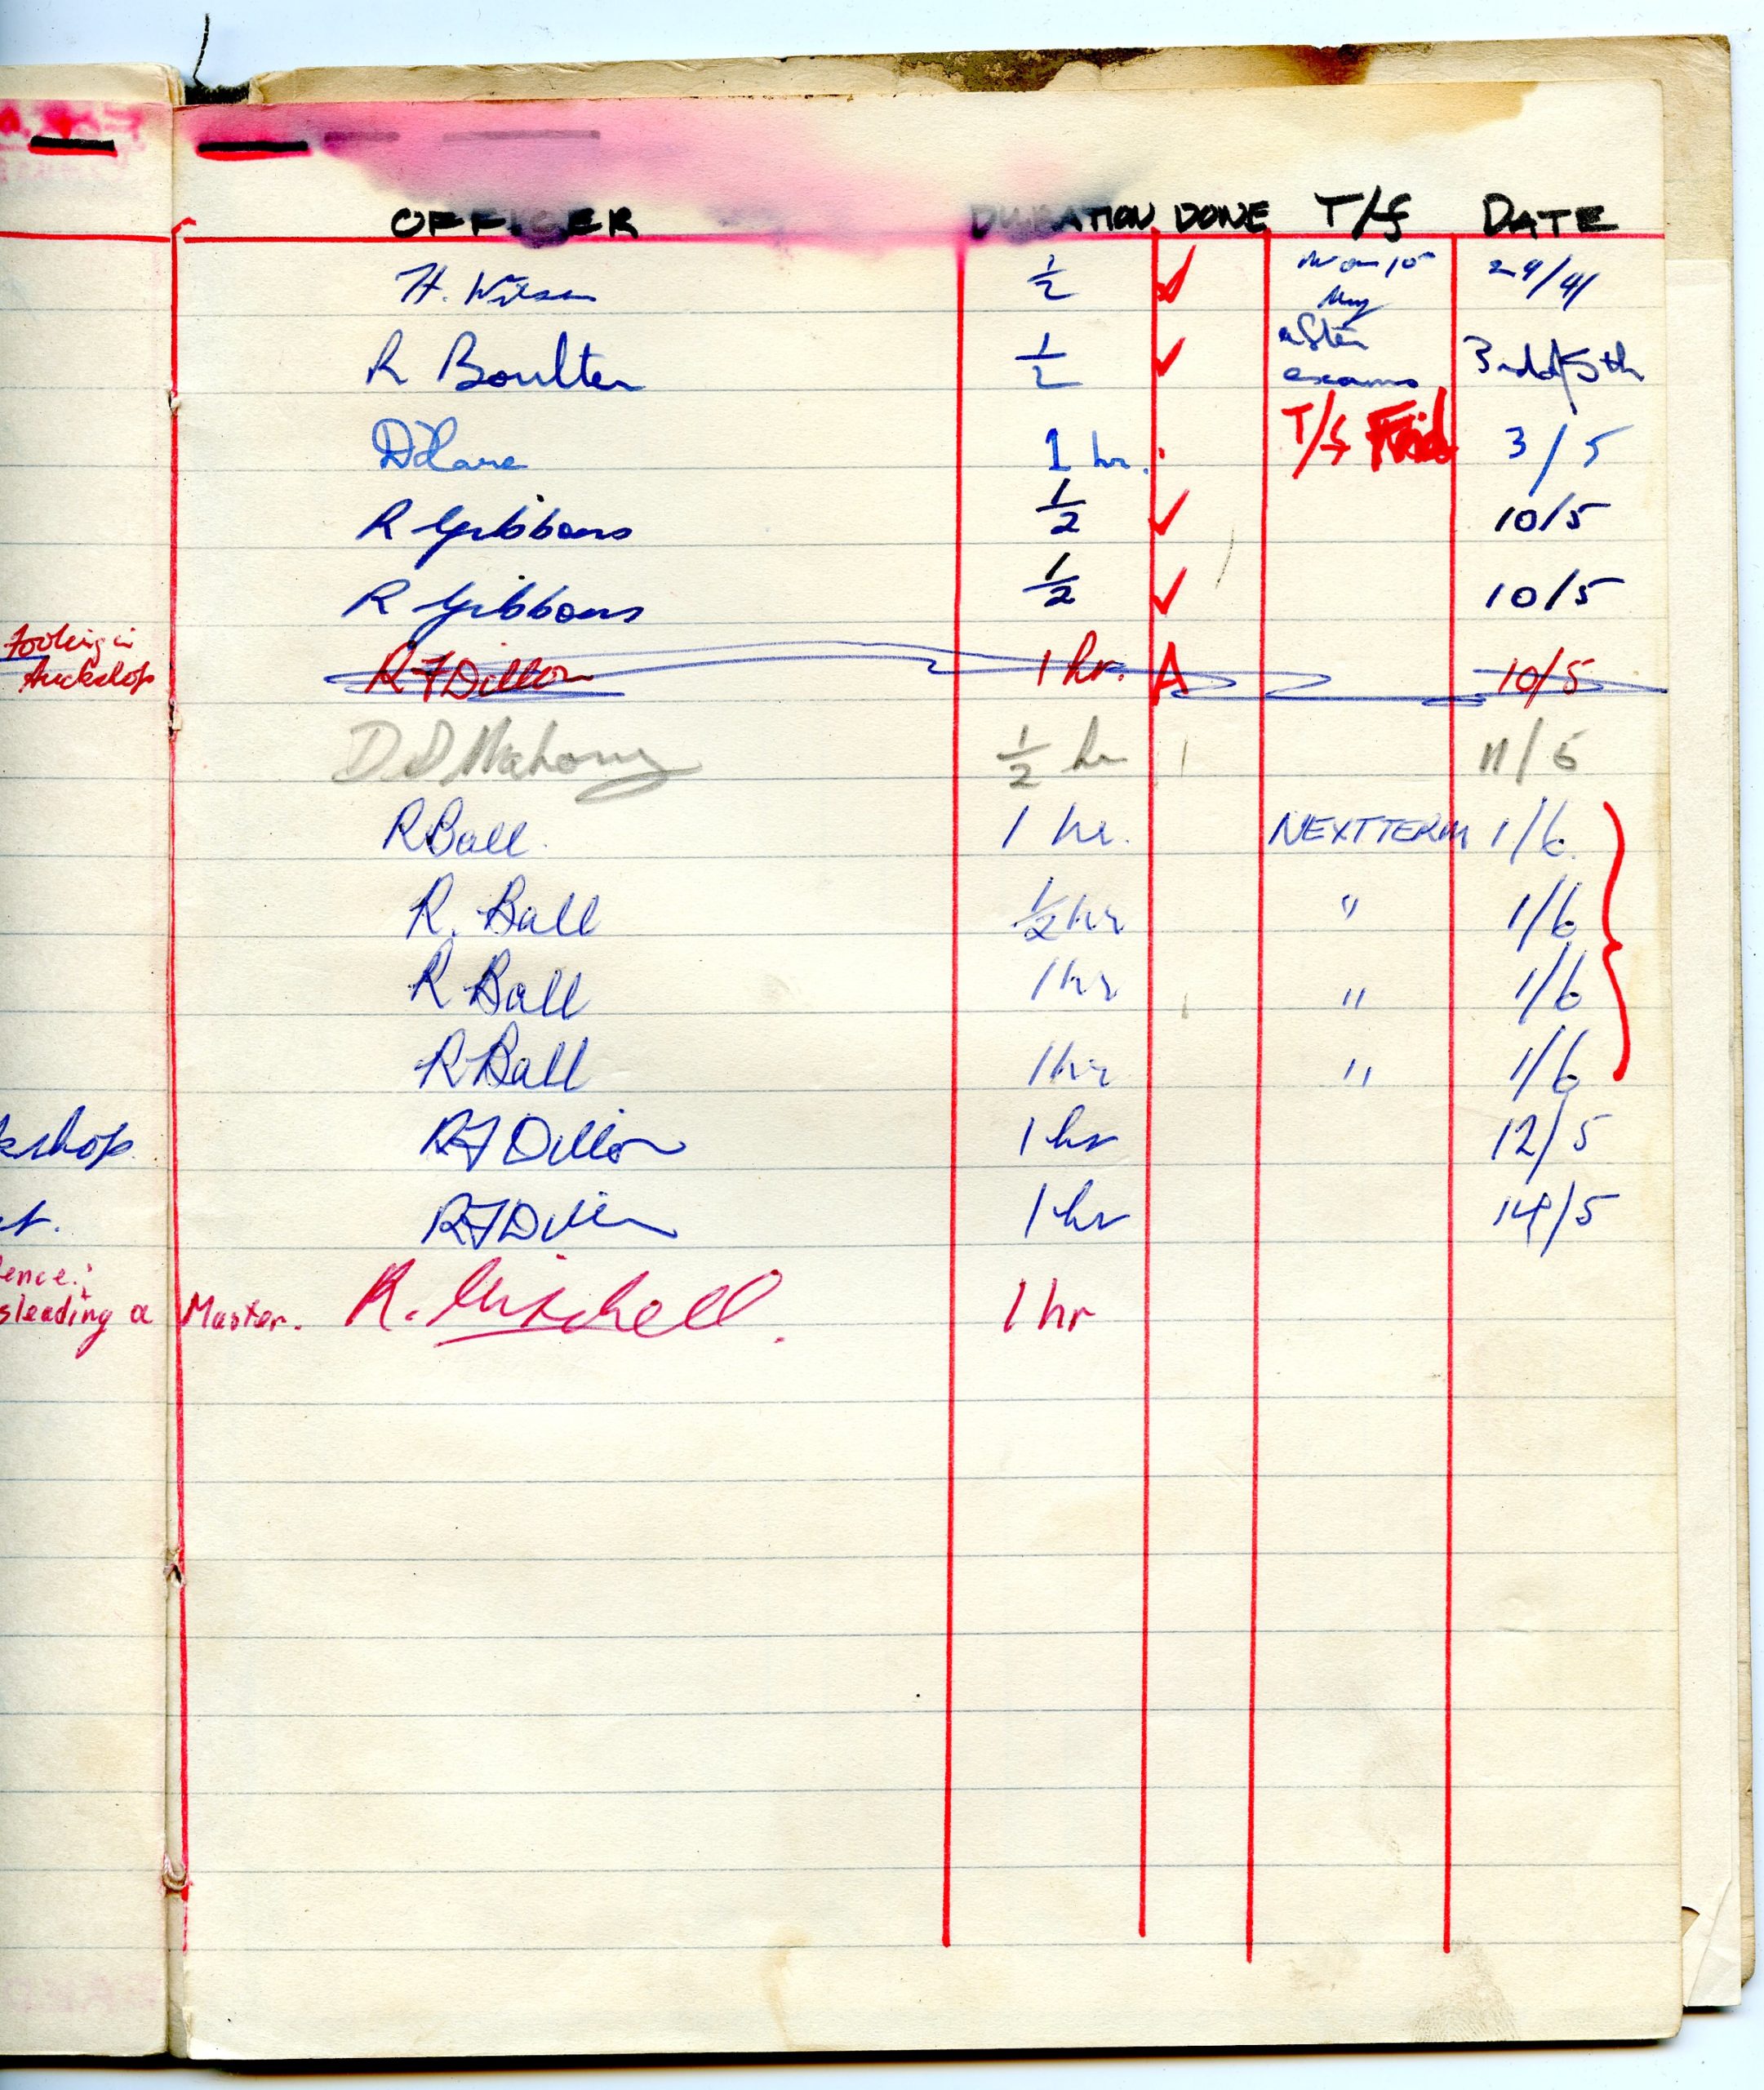 OFFICER DURATION DONE T/f DATE
H. Wilson ½ ✓ Mon 10 May 29/4
R Boulter ½ ✓ after exams 3rd/5th
D Hare 1 hr. T/f Frid 3/5
R Gibbons ½ ✓ 10/5
R Gibbons ½ ✓ 10/5
Fooling in
tuckshop R F Dillon 1 hr. A 10/5
½ hr 11/5
R Ball. 1 hr. NEXT TERM 1/6.
R. Ball ½ hr " 1/6
R Ball 1 hr " 1/6
R Ball 1 hr " 1/6
kshop RF Dillon 1 hr 12/5
RF Dillon 1 hr 14/5
ence:
sleading a Master. R. Mitchell. 1 hr